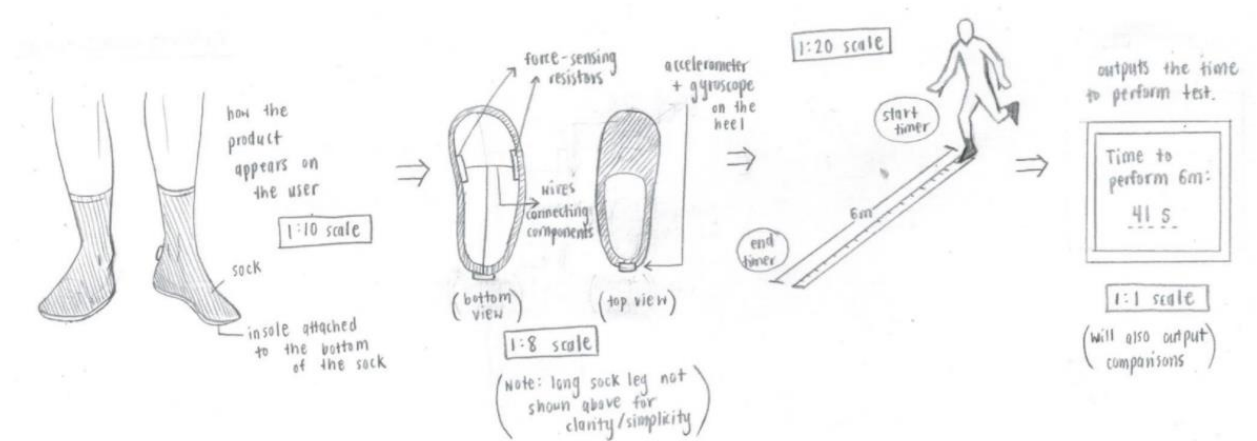 how the
product
appears on
the user
1:10 scale
sock
insole attached
to the bottom
of the sock
force-sensing
resistors
wires
connecting
components
(bottom
view)
accelerometer
+ gyroscope
on the
heel
(top view)
1:8 scale
(Note: long sock leg not
shown above for
clarity/simplicity)
1:20 scale
start
timer
6m
end
timer
outputs the time
to perform test.
Time to
perform 6m:
41 s
1:1 scale
(will also output
comparisons)